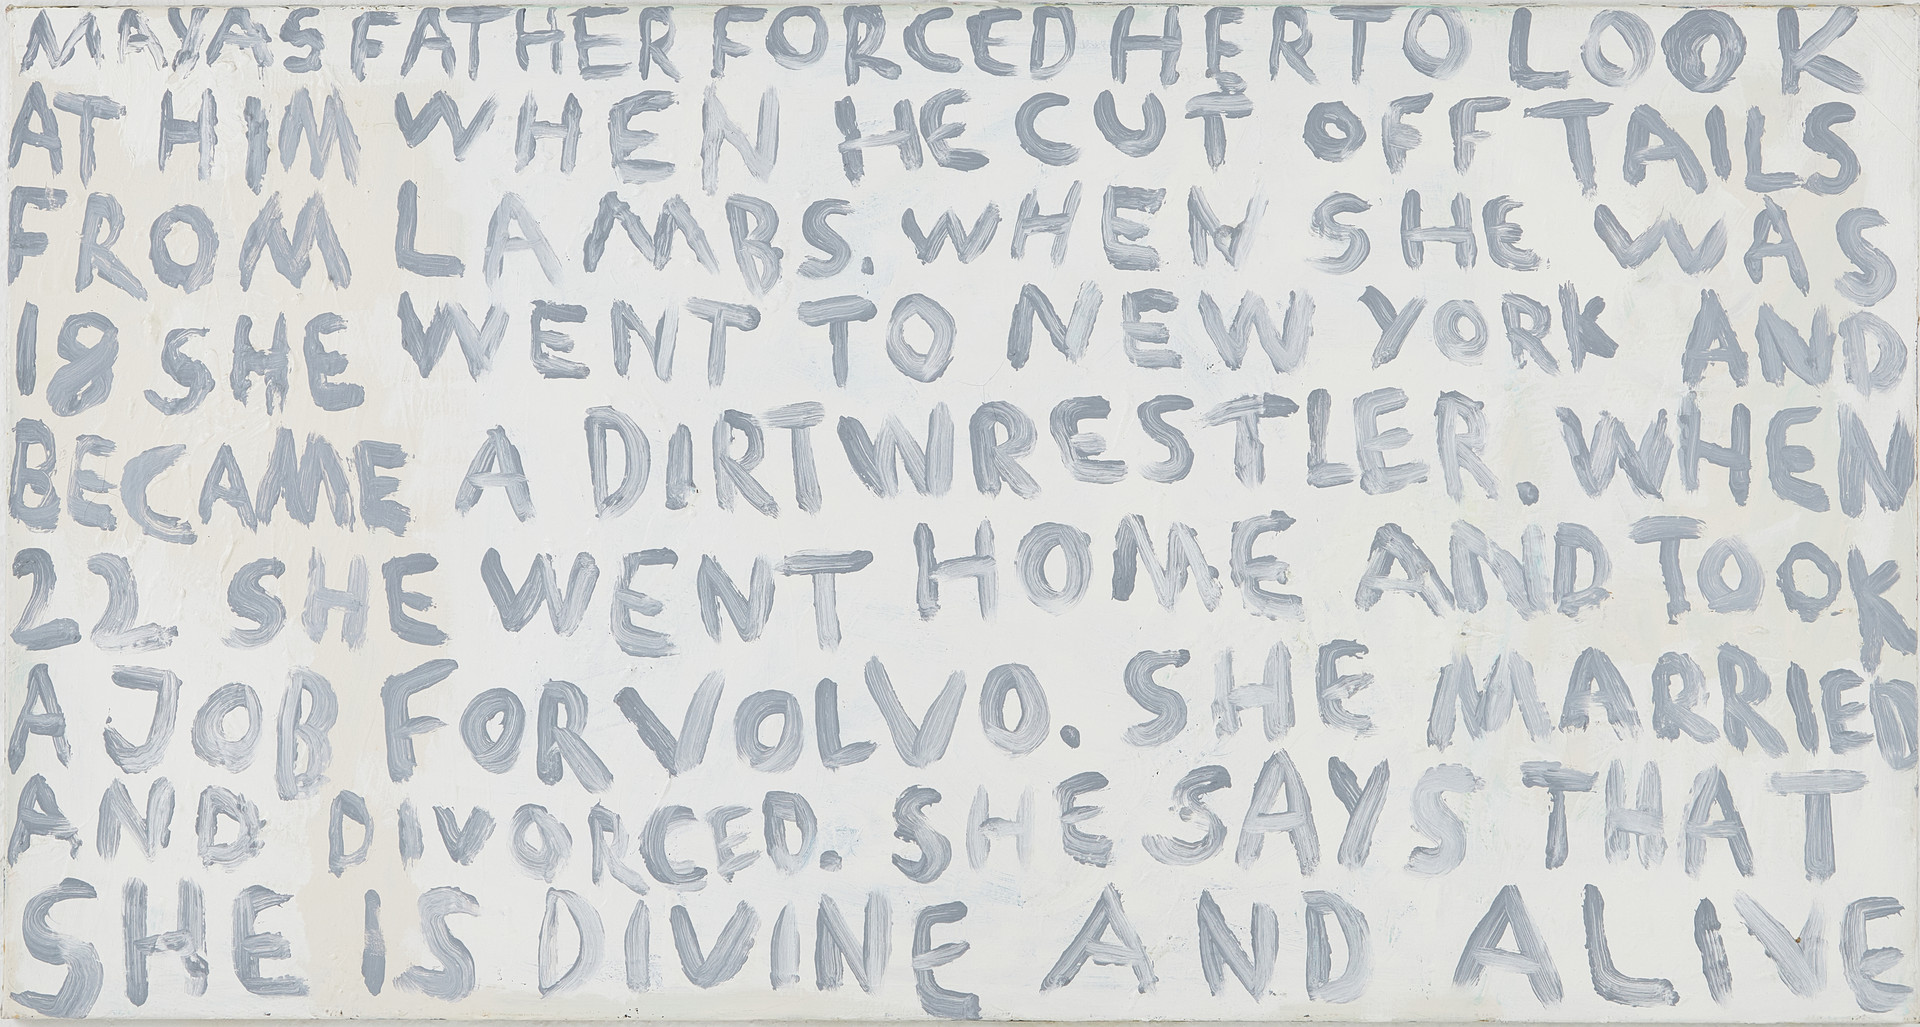 MAYAS FATHER FORCED HER TO LOOK
AT HIM WHEN HE CUT OFF TAILS
FROM LAMBS. WHEN SHE WAS
18 SHE WENT TO NEW YORK AND
BECAME A DIRTWRESTLER. WHEN
22 SHE WENT HOME AND TOOK
A JOB FOR VOLVO. SHE MARRIED
AND DIVORCED. SHE SAYS THAT
SHE IS DIVINE AND ALIVE